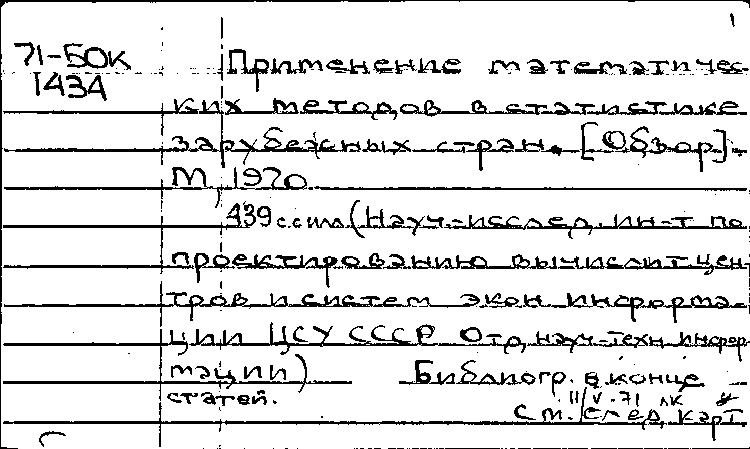 1
71-БОК
1434
Применение математичес-
ких методов в статистике
зарубежных стран. [Обзор].-
М, 1970
439 с с илл (Науч.-исслед. ин-т по
проектированию вычислит. цен-
тров и систем экон информа-
ции ЦСУ СССР Отд науч-техн инфор
мации) Библиогр. в конце
статей.
11/V-71 лк
См. след. карт